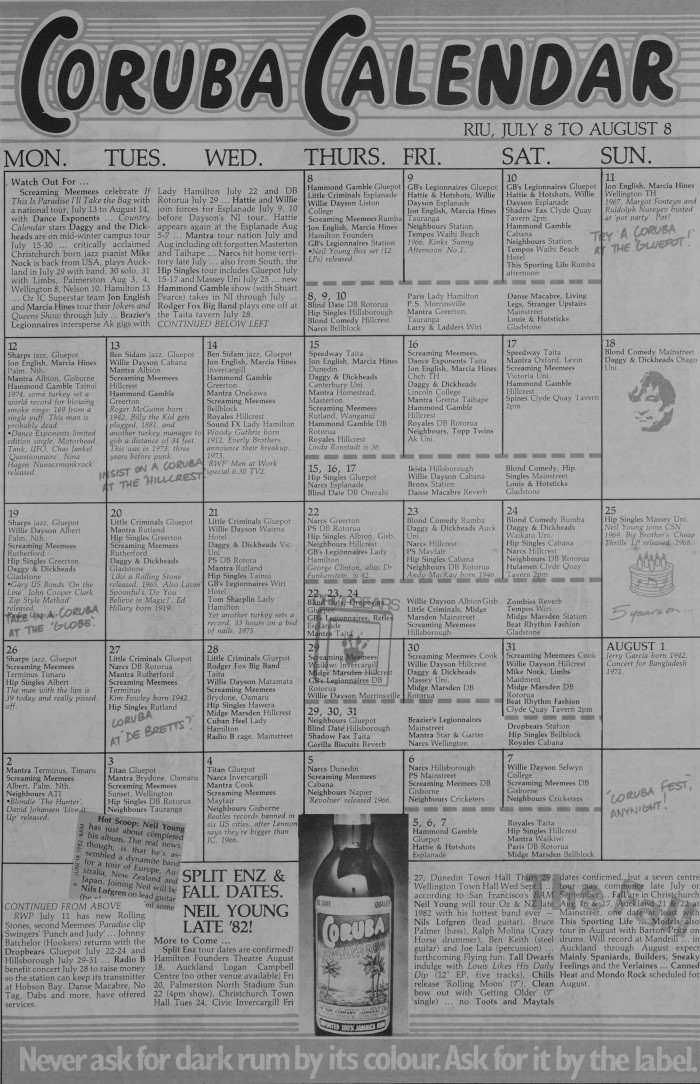 CORUBA CALENDAR
RIU, JULY 8 TO AUGUST 8
MON. TUES. WED. THURS. FRI. SAT. SUN.
Watch Out For ...
Screaming Meemees celebrate If
This Is Paradise I'll Take the Bag with
a national tour, July 13 to August 14,
with Dance Exponents ... Country
Calendar stars Daggy and the Dick-
heads are on mid-winter campus tour
July 15-30 ... critically acclaimed
Christchurch born jazz pianist Mike
Nock is back from USA, plays Auck-
land in July 29 with band, 30 solo, 31
with Limbs, Palmerston Aug 3, 4,
Wellington 8, Nelson 10, Hamilton 13
... Oz JC Superstar team Jon English
and Marcia Hines tour their Jokers and
Queens Show through July ... Brazier's
Legionnaires intersperse Ak gigs with
Lady Hamilton July 22 and DB
Rotorua July 29 ... Hattie and Willie
join forces for Esplanade July 9, 10
before Dayson's NI tour. Hattie
appears again at the Esplanade Aug
5-7 ... Mantra tour nation July and
Aug including oft forgotten Masterton
and Taihape ... Narcs hit home terri-
tory late July ... also from South, the
Hip Singles tour includes Gluepot July
15-17 and Massey Uni July 25 ... new
Hammond Gamble show (with Stuart
Pearce) takes in NI through July ...
Rodger Fox Big Band plays one off at
the Taita tavern July 28.
CONTINUED BELOW LEFT
8
Hammond Gamble Gluepot
Little Criminals Esplanade
Willie Dayson Liston
College
Screaming Meemees Rumba
Jon English, Marcia Hines
Hamilton Founders
GB's Legionnaires Station
•Neil Young Box set (12
LPs) released.
9
GB's Legionnaires Gluepot
Hattie & Hotshots, Willie
Dayson Esplanade
Jon English, Marcia Hines
Tauranga
Neighbours Station
Tempos Waihi Beach
1966, Kinks 'Sunny
Afternoon' No 1.
10
GB's Legionnaires Gluepot
Hattie & Hotshots, Willie
Dayson Esplanade
Shadow Fax Clyde Quay
Tavern 2pm
Hammond Gamble
Cabana
Neighbours Station
Tempos Waihi Beach
Hotel
This Sporting Life Rumba
afternoon
11
Jon English, Marcia Hines
Wellington TH
1967, Margot Fonteyn and
Rudolph Nureyev busted
at 'pot party'. Pot?
TRY A CORUBA
AT THE 'GLUEPOT'!
8, 9, 10
Blind Date DB Rotorua
Hip Singles Hillsborough
Blond Comedy Hillcrest
Narcs Bellblock
Paris Lady Hamilton
P.S. Morrinsville
Mantra Greerton,
Tauranga
Larry & Ladders Wiri
Danse Macabre, Living
Legs, Stranger Upstairs
Mainstreet
Louie & Hotsticks
Gladstone
12
Sharps jazz, Gluepot
Jon English, Marcia Hines
Palm. Nth.
Mantra Albion, Gisborne
Hammond Gamble Tainui
1974, some turkey set a
world record for blowing
smoke rings: 169 from a
single puff. This man is
probably dead.
•Dance Exponents limited
edition single. Motorhead,
Tank, UFO, Chas Jankel
'Questionnaire', Nina
Hagen 'Nunsexmonkrock'
released.
13
Ben Sidam jazz, Gluepot
Willie Dayson Cabana
Mantra Albion
Screaming Meemees
Hillcrest
Hammond Gamble
Greerton
Roger McGuinn born
1942, Billy the Kid gets
plugged, 1881, and
another turkey manages to
gob a distance of 34 feet.
This was in 1973, three
years before punk.
INSIST ON A CORUBA
AT THE 'HILLCREST'
14
Ben Sidam jazz, Gluepot
Jon English, Marcia Hines
Invercargill
Hammond Gamble
Greerton
Mantra Onekawa
Screaming Meemees
Bellblock
Royales Hillcrest
Sound FX Lady Hamilton
Woody Guthrie born
1912, Everly Brothers
announce their breakup,
1973.
'RWP' Men at Work
special 6.30 TV2.
15
Speedway Taita
Jon English, Marcia Hines
Dunedin
Daggy & Dickheads
Canterbury Uni.
Mantra Homestead,
Masterton
Screaming Meemees
Rutland, Wanganui
Hammond Gamble DB
Rotorua
Royales Hillcrest
Linda Ronstadt is 36.
16
Screaming Meemees,
Dance Exponents Taita
Jon English, Marcia Hines
Chch TH
Daggy & Dickheads
Lincoln College
Mantra Gretna Taihape
Hammond Gamble
Hillcrest
Royales DB Rotorua
Neighbours, Topp Twins
Ak Uni.
17
Speedway Taita
Mantra Oxford, Levin
Screaming Meemees
Victoria Uni.
Hammond Gamble
Hillcrest
Spines Clyde Quay Tavern
2pm
18
Blond Comedy Mainstreet
Daggy & Dickheads Otago
Uni.
15, 16, 17
Hip Singles Gluepot
Narcs Esplanade
Blind Date DB Onerahi
Ikista Hillsborough
Willie Dayson Cabana
Bronx Station
Danse Macabre Reverb
Blond Comedy, Hip
Singles Mainstreet
Louie & Hotsticks
Gladstone
19
Sharps jazz, Gluepot
Willie Dayson Albert
Palm. Nth.
Screaming Meemees
Rutherford
Hip Singles Greerton
Daggy & Dickheads
Gladstone
•Gary US Bonds 'On the
Line', John Cooper Clark
'Zip Style Method'
released.
TAKE IN A CORUBA
AT THE 'GLOBE'.
20
Little Criminals Gluepot
Mantra Rutland
Hip Singles Greerton
Screaming Meemees
Rutherford
Daggy & Dickheads
Gladstone
'Like a Rolling Stone'
released, 1965. Also Lovin
Spoonful's 'Do You
Believe in Magic?', Ed
Hillary born 1919.
21
Little Criminals Gluepot
Willie Dayson Wairoa
Hotel
Daggy & Dickheads Vic.
Uni
PS DB Rotorua
Mantra Rutland
Hip Singles Tainui
GB's Legionnaires Wiri
Hotel
Tom Sharplin Lady
Hamilton
Yet another turkey sets a
record, 33 hours on a bed
of nails, 1975.
22
Narcs Greerton
PS DB Rotorua
Hip Singles Albion, Gisb.
Neighbours Hillcrest
GB's Legionnaires Lady
Hamilton
George Clinton, alias Dr
Funkenstein, is 42.
23
Blond Comedy Rumba
Daggy & Dickheads Auck
Uni.
Narcs Hillcrest
PS Mayfair
Hip Singles Cabana
Neighbours DB Rotorua
Andy MacKay born 1946.
24
Blond Comedy Rumba
Daggy & Dickheads
Waikato Uni.
Hip Singles Cabana
Narcs Hillcrest
Neighbours DB Rotorua
Hulamen Clyde Quay
Tavern 2pm
25
Hip Singles Massey Uni.
Neil Young joins CSN
1969. Big Brother's 'Cheap
Thrills' LP released, 1968.
5 years on...
22, 23, 24
Blind Date, Dropbears
Gluepot
GB's Legionnaires, Reflex
Esplanade
Mantra Taita
Willie Dayson Albion Gisb.
Little Criminals, Midge
Marsden Mainstreet
Screaming Meemees
Hillsborough
Zombies Reverb
Tempos Wiri
Midge Marsden Station
Beat Rhythm Fashion
Gladstone
26
Sharps jazz, Gluepot
Screaming Meemees
Terminus Timaru
Hip Singles Albert
The man with the lips is
39 today and really pissed
off.
27
Little Criminals Gluepot
Narcs DB Rotorua
Mantra Rutherford
Screaming Meemees
Terminus
Kim Fowley born 1942.
Hip Singles Rutland
CORUBA
AT 'DE BRETTS'?
28
Little Criminals Gluepot
Rodger Fox Big Band
Taita
Willie Dayson Matamata
Screaming Meemees
Brydone, Oamaru
Hip Singles Hawera
Midge Marsden Hillcrest
Cuban Heel Lady
Hamilton
Radio B rage, Mainstreet
29
Screaming Meemees
Waikiwi Invercargill
Midge Marsden Hillcrest
GB's Legionnaires DB
Rotorua
Willie Dayson Morrinsville
30
Screaming Meemees Cook
Willie Dayson Hillcrest
Daggy & Dickheads
Massey Uni.
Midge Marsden DB
Rotorua
31
Screaming Meemees Cook
Willie Dayson Hillcrest
Mike Nock, Limbs
Maidment
Midge Marsden DB
Rotorua
Beat Rhythm Fashion
Clyde Quay Tavern 2pm
AUGUST 1
Jerry Garcia born 1942.
Concert for Bangladesh
1971.
29, 30, 31
Neighbours Gluepot
Blind Date Hillsborough
Shadow Fax Taita
Gorilla Biscuits Reverb
Brazier's Legionnaires
Mainstreet
Mantra Star & Garter
Narcs Wellington
Dropbears Station
Hip Singles Bellblock
Royales Cabana
2
Mantra Terminus, Timaru
Screaming Meemees
Albert, Palm. Nth.
Neighbours ATI
•Blondie 'The Hunter',
David Johansen 'Live it
Up' released.
3
Titan Gluepot
Mantra Brydone, Oamaru
Screaming Meemees
Sunset, Wellington
Hip Singles DB Rotorua
Neighbours Tauranga
4
Titan Gluepot
Narcs Invercargill
Mantra Cook
Screaming Meemees
Mayfair
Neighbours Gisborne
Beatles records banned in
six US cities, after Lennon
says they're bigger than
JC, 1966.
5
Narcs Dunedin
Screaming Meemees
Cabana
Neighbours Napier
'Revolver' released 1966.
6
Narcs Hillsborough
PS Mainstreet
Screaming Meemees DB
Gisborne
Neighbours Cricketers
7
Willie Dayson Selwyn
College
Screaming Meemees DB
Gisborne
Neighbours Cricketers
'CORUBA FEST,
ANYNIGHT!
5, 6, 7
Hammond Gamble
Gluepot
Hattie & Hotshots
Esplanade
Royales Taita
Hip Singles Hillcrest
Mantra Waikiwi
Paris DB Rotorua
Midge Marsden Bellblock
Hot Scoop: Neil Young
has just about completed
his album. The real news,
though, is that he's as-
sembled a dynamite band
for a tour of Europe, Au-
stralia, New Zealand and
Japan. Joining Neil will be
Nils Lofgren on lead guitar
CONTINUED FROM ABOVE
RWP July 11 has new Rolling
Stones, second Meemees Paradise clip
Swingers' 'Punch and Judy' ... Johnny
Batchelor (Hookers) returns with the
Dropbears Gluepot July 22-24 and
Hillsborough July 29-31 ... Radio B
benefit concert July 28 to raise money
so the station can keep its transmitter
at Hobson Bay. Danse Macabre, No
Tag, Dabs and more, have offered
services.
SPLIT ENZ &
FALL DATES.
NEIL YOUNG
LATE '82!
More to Come ...
Split Enz tour dates are confirmed!
Hamilton Founders Theatre August
18, Auckland Logan Campbell
Centre (no other venue available) Fri
20, Palmerston North Stadium Sun
22 (4pm show), Christchurch Town
Hall Tues 24, Civic Invercargill Fri
CORUBA
JAMAICA RUM
IMPORTED 100% JAMAICA RUM
27, Dunedin Town Hall Thurs 29
Wellington Town Hall Wed Sept 1 ...
according to San Francisco's
Neil Young will tour Oz & NZ
1982 with his hottest band ever —
Nils Lofgren (lead guitar), Bruce
Palmer (bass), Ralph Molina (Crazy
Horse drummer), Ben Keith (steel
guitar) and Joe Lala (percussion) ...
forthcoming Flying fun: Tall Dwarfs
indulge with Louis Likes His Daily
Dip (12" EP, five tracks), Chills
release 'Rolling Moon' (7"), Clean
bow out with 'Getting Older' (7"
single) ... no Toots and Maytals
dates confirmed, but a seven centre
tour may commence late July or
September ... Fall are in Christchurch
Mainstreet, one date
This Sporting Life ... Models also
tour in August with Barton Price on
drums. Will record at Mandrill ... in
Auckland through August expect
Mainly Spaniards, Builders, Sneaky
Feelings and the Verlaines ... Canned
Heat and Mondo Rock scheduled for
August.
Never ask for dark rum by its colour. Ask for it by the label